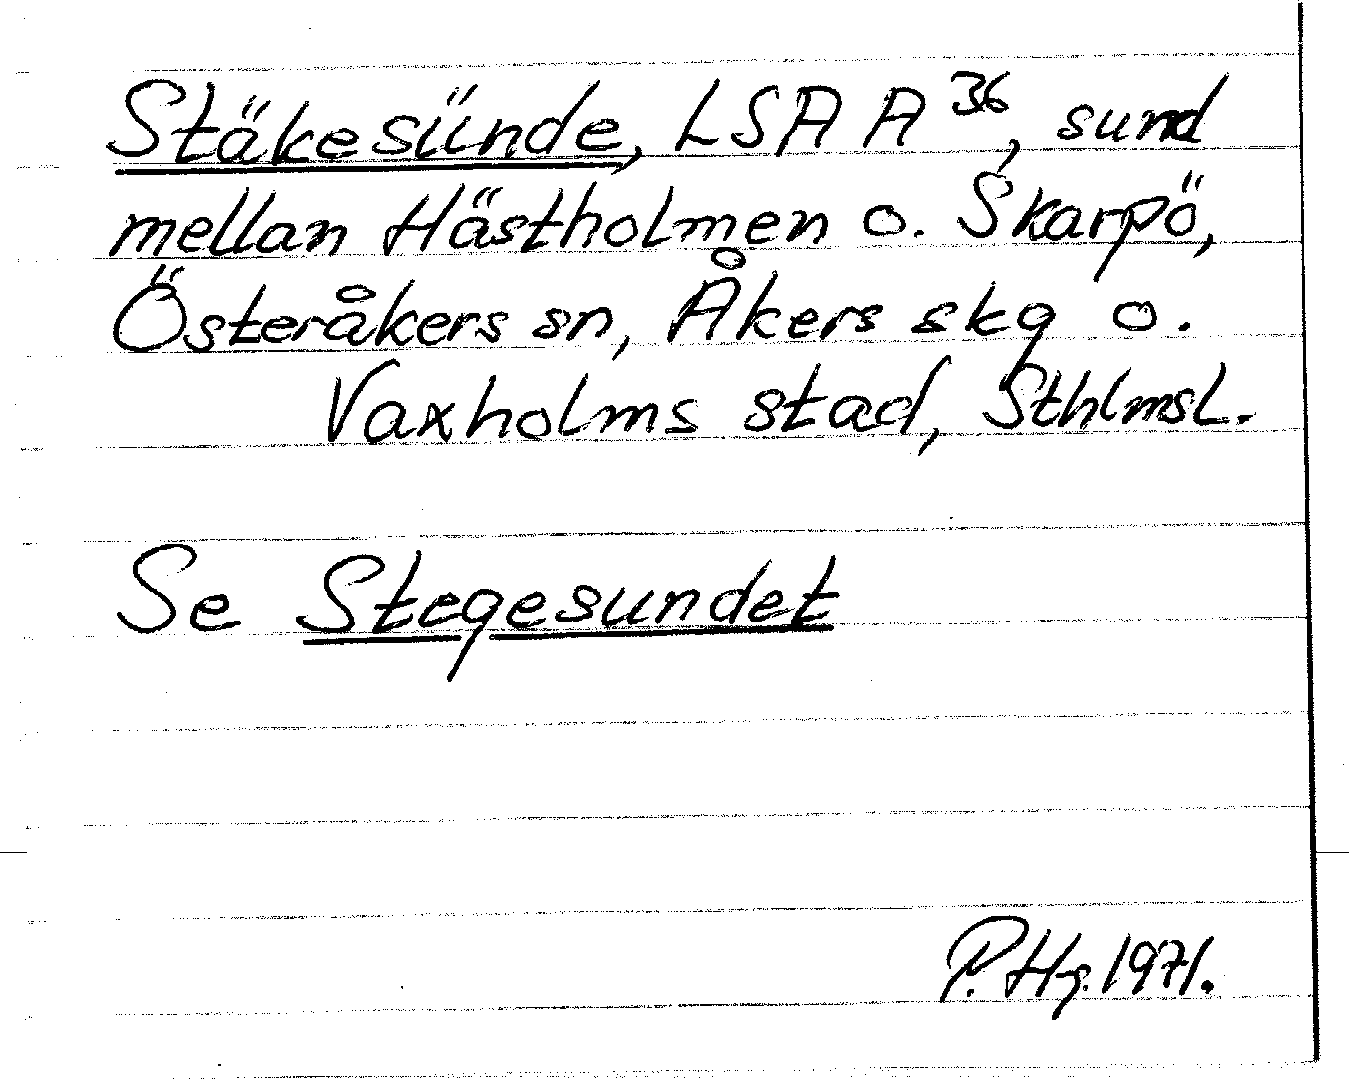 Stäkesünde, LSA A 36, sund
mellan Hästholmen o. Skarpö,
Österåkers sn, Åkers skg o.
Vaxholms stad, Sthlmsl.
Se Stegesundet
P. Hg. 1971.